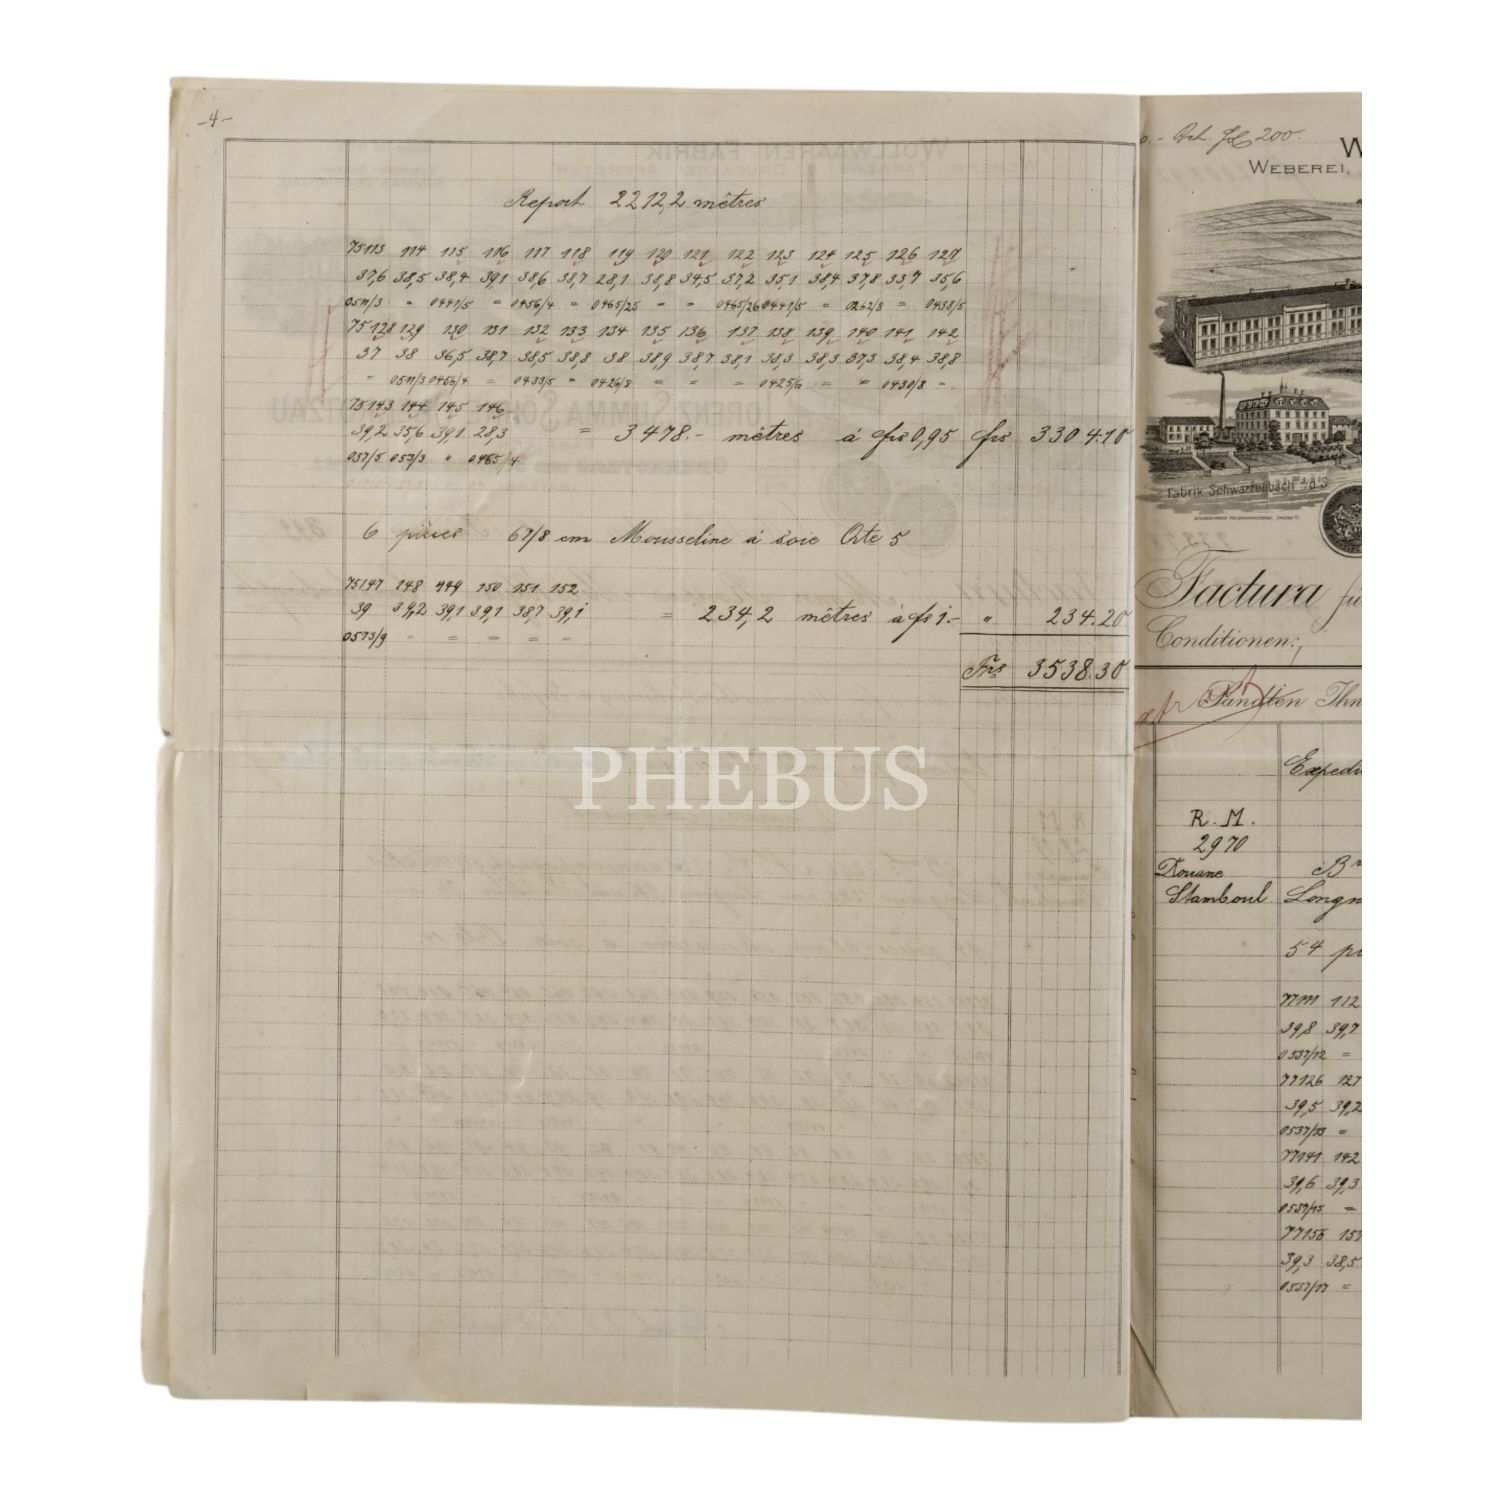 -4-
Report 2212,2 mètres
75113 114 115 116 117 118 119 120 121 122 123 124 125 126 127
37,6 38,5 38,4 39,1 38,6 38,7 28,1 38,8 34,5 37,2 35,1 38,4 37,8 33,7 35,6
0511/3 " 0441/5 = 0456/4 = 0465/25 = = 0465/26 0441/5 = 0262/8 = 0438/5
75128 129 130 131 132 133 134 135 136 137 138 139 140 141 142
37 38 36,5 38,7 38,5 38,8 38 38,9 38,7 38,1 38,3 38,3 37,3 38,4 38,8
= 0511/3 0456/4 = 0433/5 = 0426/8 = = = 0425/6 = = 0430/8 =
75143 144 145 146
39,2 35,6 39,1 28,3 = 3478.- mètres á frs 0,95 frs 3304.10
057/5 053/3 " 0465/4
6 pièces 67/8 cm Mousseline á soie Qté 5
75147 148 149 150 151 152
39 39,2 39,1 39,1 38,7 39,1 = 234,2 mètres à frs 1.- " 234.20
0573/9 = = = = =
Frs 3538.30
PHEBUS
200.
W
WEBEREI,
Fabrik Schwarzenbach a/S
Factura fü
Conditionen:
Sandten Ihn
Expedi
R. M.
2970
Douane B
Stamboul Longu
54 pi
77111 112
39,8 39,7
0537/12 =
77126 127
39,5 39,2
0537/13 =
77141 142
39,6 39,3
0537/15 =
77156 157
39,3 38,5
0537/17 =